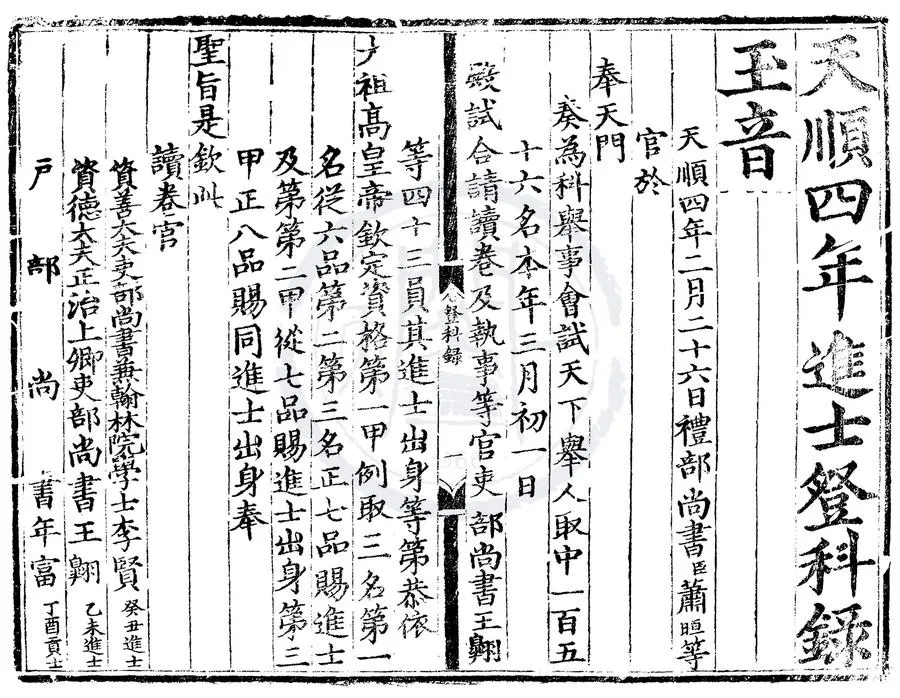 天順四年進士登科録
玉音
天順四年二月二十六日禮部尚書臣蕭晅等
官於
奉天門
奏為科舉事會試天下舉人取中一百五
十六名本年三月初一日
殿試合請讀卷及執事等官吏部尚書王翱
登科録
一
等四十三員其進士出身等第恭依
太祖高皇帝欽定資格第一甲例取三名第一
名從六品第二第三名正七品賜進士
及第第二甲從七品賜進士出身第三
甲正八品賜同進士出身奉
聖旨是欽此
讀卷官
資善大夫吏部尚書兼翰林院學士李賢 癸丑進士
資德大夫正治上卿吏部尚書王翱 乙未進士
戶部尚書年富 丁酉貢士